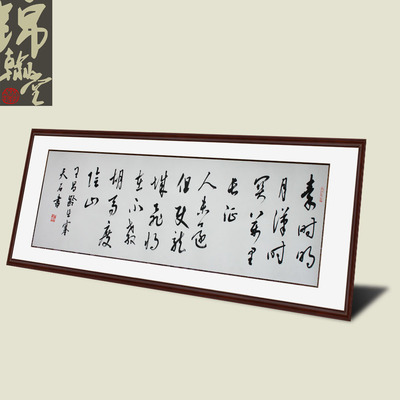 锦翰堂
秦时明
月漢时
关萬里
长征
人未还
但使龙
城飛将
在不教
胡马度
陰山
王昌龄出塞
天石书